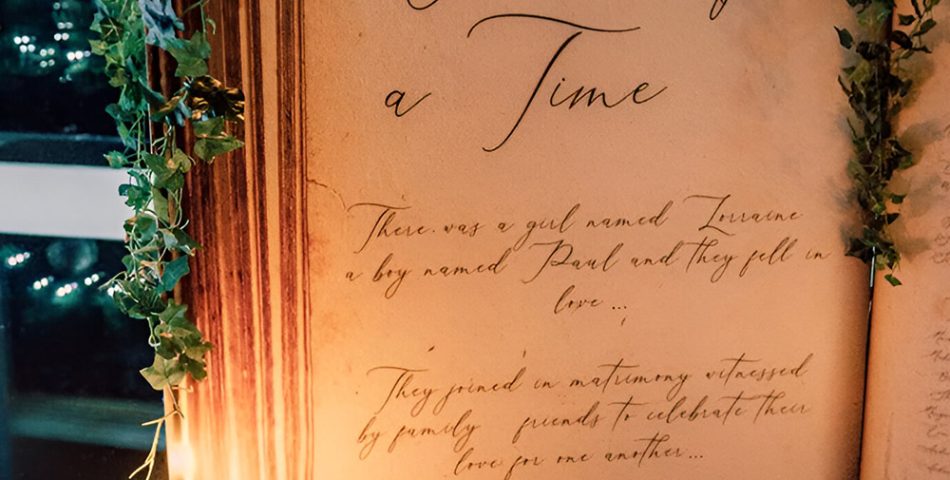 a Time
There was a girl named Lorraine
a boy named Paul and they fell in
love ...
They joined in matrimony witnessed
by family friends to celebrate their
love for one another...